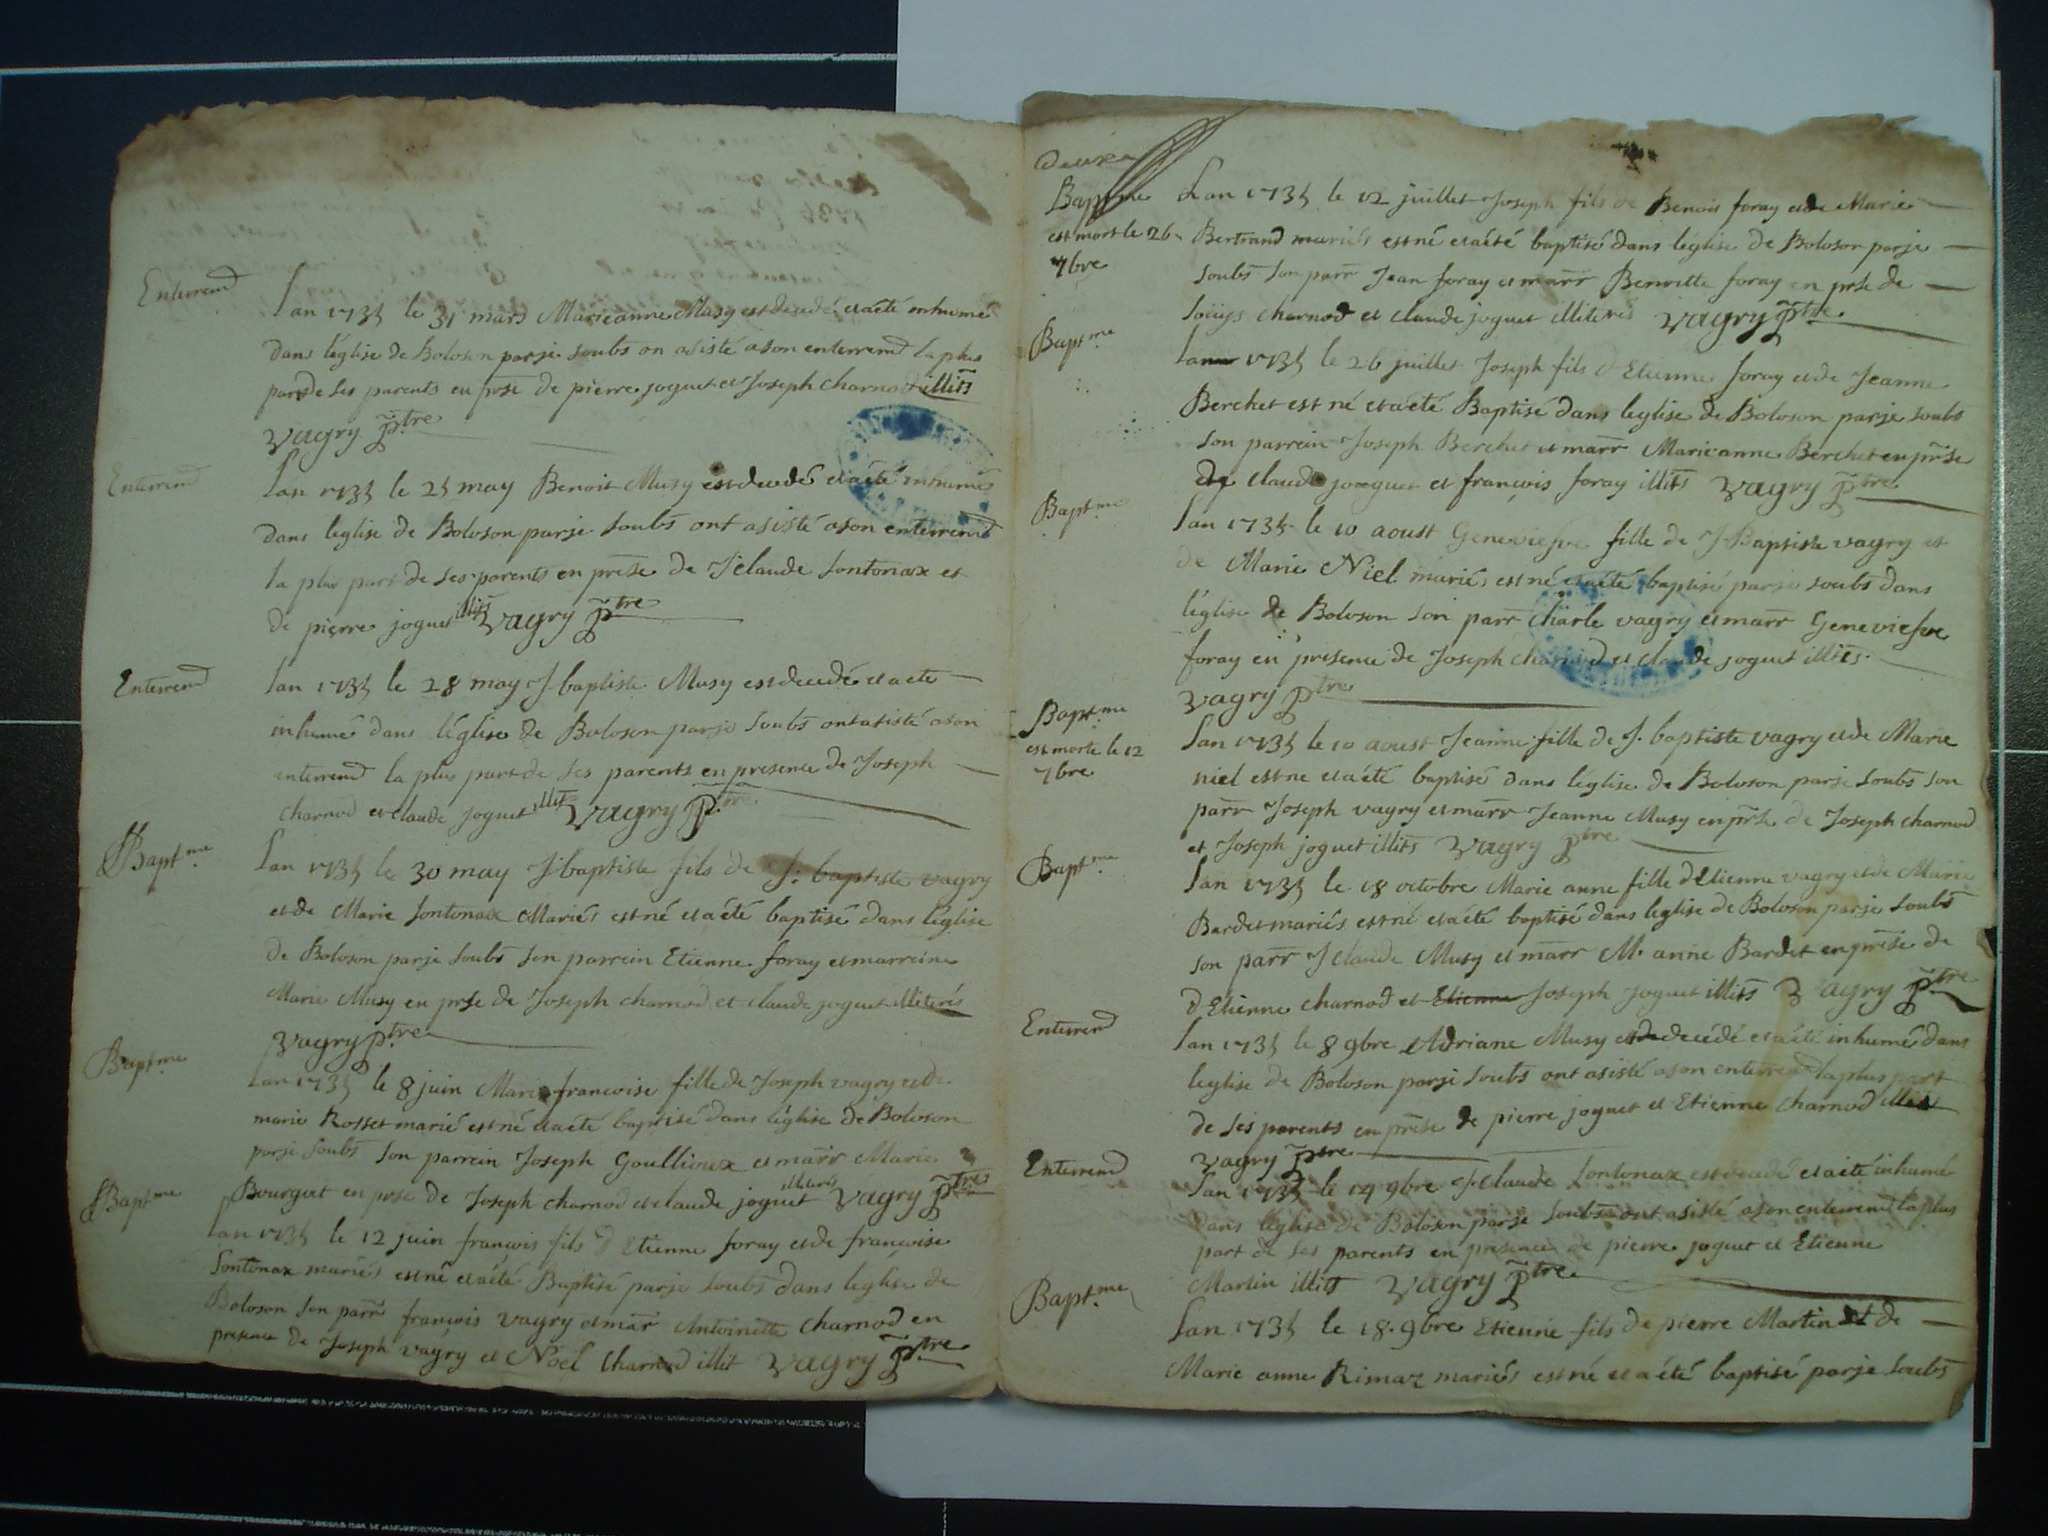 Enterremd
Lan 1735 le 31 mars Marieanne Musy est decedé et a été inhumé
dans léglise de Boloson par je soubs on asisté a son enterremd la plus
par de ses parents en prse de pierre joguet et Joseph charnod illits
Vagry ptre
Enterremd
Lan 1735 le 25 may Benoit Musy est decedé et a été inhumé
dans leglise de Boloson par je soubs ont asisté a son enterremd
la plus part de ses parents en prese de J claude Lontonax et
de pierre joguet illits Vagry ptre
Enterremd
Lan 1735 le 28 may J baptiste Musy est decedé et a ete
inhumé dans léglise de Boloson par je soubs ont asisté a son
enterremd la plus part de ses parents en presence de Joseph
charnod et claude joguet illits Vagry ptre
Baptme
Lan 1735 le 30 may J baptiste fils de J. baptiste vagry
et de Marie Lontonax Mariés est né et a été baptisé dans léglise
de Boloson par je soubs son parrein Etienne foray et marreine
Marie Musy en prse de Joseph charnod et claude joguet illiterés
Vagry ptre
Baptme
Lan 1735 le 8 juin Marie francoise fille de Joseph vagry et de
marie Rosset marié est né et a été baptisé dans léglise de Boloson
par je soubs son parrein Joseph Goullioux et marr Marie
Bourguet en prse de Joseph charnod et claude joguet illiterés Vagry ptre
Baptme
Lan 1735 le 12 juin francois fils d Etienne foray et de francoise
Lontonax mariés est né et a été Baptisé par je soubs dans leglise de
Boloson son parr françois vagry et mar Antoinette charnod en
presence de Joseph vagry et Noel charnod illit Vagry ptre
deuxe
Baptme
est mort le 26
7bre
Lan 1735 le 12 juillet Joseph fils de Benois foray et de Marie
Bertrand mariés est né et a été baptisé dans léglise de Boloson par je
soubs son parr Jean foray et marr Benoitte foray en prse de
Loüys charnod et claude joguet illiterés Vagry ptre
Baptme
Lan 1735 le 26 juillet Joseph fils d Etienne foray et de Jeanne
Berchet est né et a été Baptisé dans leglise de Boloson par je soubs
son parrein Joseph Berchet et marr Marieanne Berchet en prse
de claude joeguet et françois foray illits Vagry ptre
Baptme
Lan 1735 le 10 aoust Genevieve fille de J Baptiste vagry et
de Marie Niel mariés est né et a été baptisé par je soubs dans
léglise de Boloson son parr charle vagry et marr Genevieve
foray en presence de Joseph charnod et claude joguet illits.
Vagry ptre
Baptme
est morte le 12
7bre
Lan 1735 le 10 aoust Jeanne fille de J. baptiste vagry et de Marie
niel est ne et a été baptisé dans léglise de Boloson par je soubs son
parr Joseph vagry et marr Jeanne Musy en prse de Joseph charnod
et Joseph joguet illits Vagry ptre
Baptme
Lan 1735 le 18 octobre Marie anne fille d Etienne vagry et de Marie
Bardet mariés est né et a été baptisé dans leglise de Boloson par je soubs
son parr J claude Musy et marr M. anne Bardet en prese de
d Etienne charnod et Etienne Joseph joguet illits Vagry ptre
Enterremd
Lan 1735 le 8 9bre Adriane Musy est decédé et a été inhumé dans
leglise de Boloson par je soubs ont asisté a son enterremd la plus part
de ses parents en prese de pierre joguet et Etienne charnod illits
Vagry ptre
Enterremd
Lan 1735 le 14 9bre J. claude Lontonax est decedé et a été inhumé
dans léglise de Boloson par je soubs ont asisté a son enterremd la plus
part de ses parents en presence de pierre joguet et Etienne
Martin illits Vagry ptre
Baptme
Lan 1735 le 18. 9bre Etienne fils de pierre Martin et de
Marie anne Rimaz mariés est né et a été baptisé par je soubs